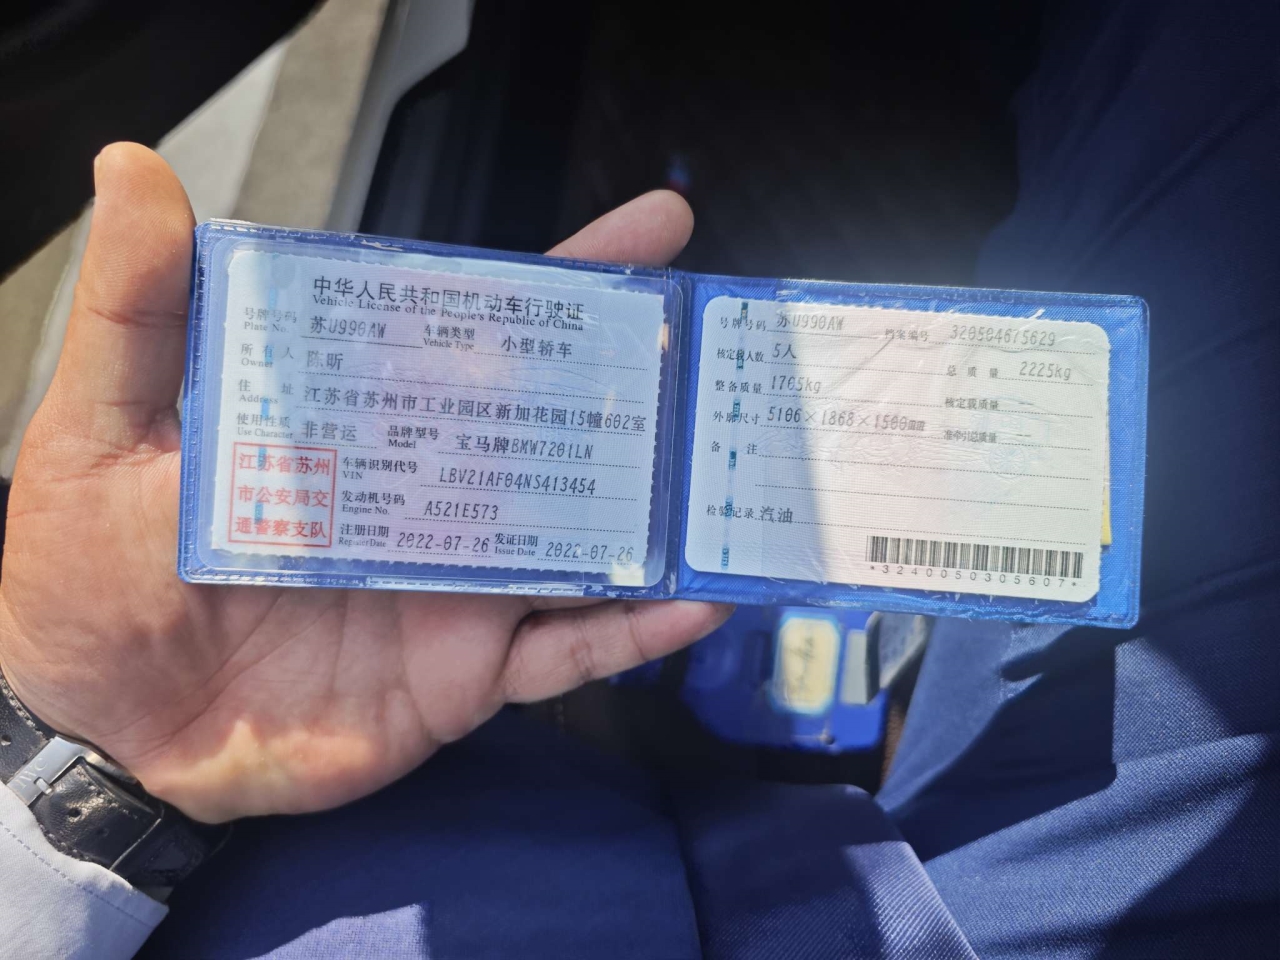 中华人民共和国机动车行驶证
Vehicle License of the People's Republic of China
号牌号码 苏U990AW 车辆类型 小型轿车
Plate No. Vehicle Type
所有人 陈昕
Owner
住址 江苏省苏州市工业园区新加花园15幢602室
Address
使用性质 非营运 品牌型号 宝马牌BMW7201LN
Use Character Model
江苏省苏州
市公安局交
通警察支队
车辆识别代号 LBV21AF04NS413454
VIN
发动机号码 A521E573
Engine No.
注册日期 2022-07-26 发证日期 2022-07-26
Register Date Issue Date
号牌号码 苏U990AW 档案编号 320504675629
核定载人数 5人 总质量 2225kg
整备质量 1765kg 核定载质量 --
外廓尺寸 5106×1868×1500mm 准牵引总质量 --
备注
检验记录 汽油
*3240050305607*